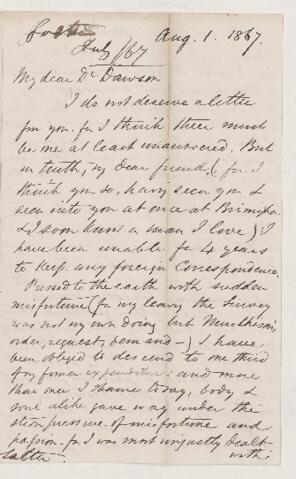 July /67
Aug. 1. 1867.
My dear Dr Dawson
I do not deserve a letter
from you, for I think there must
be one at least unanswered. But
in truth, my dear friend, (for I
think you so, having seen you &
seen into you at once at Birmingham
& I soon know a man I love) I
have been unable for 4 years
to keep any foreign correspondence.
Pressed to the earth with sudden
misfortune (for my leaving the Survey
was not my own doing but Murchison's
order, request, demand—) I have
been obliged to descend to one third
of my former expenditure and more
than once I shame to say, body &
soul alike gave way under the
stern pressure of misfortune and
passion. for I was most unjustly dealt
with.
Salter